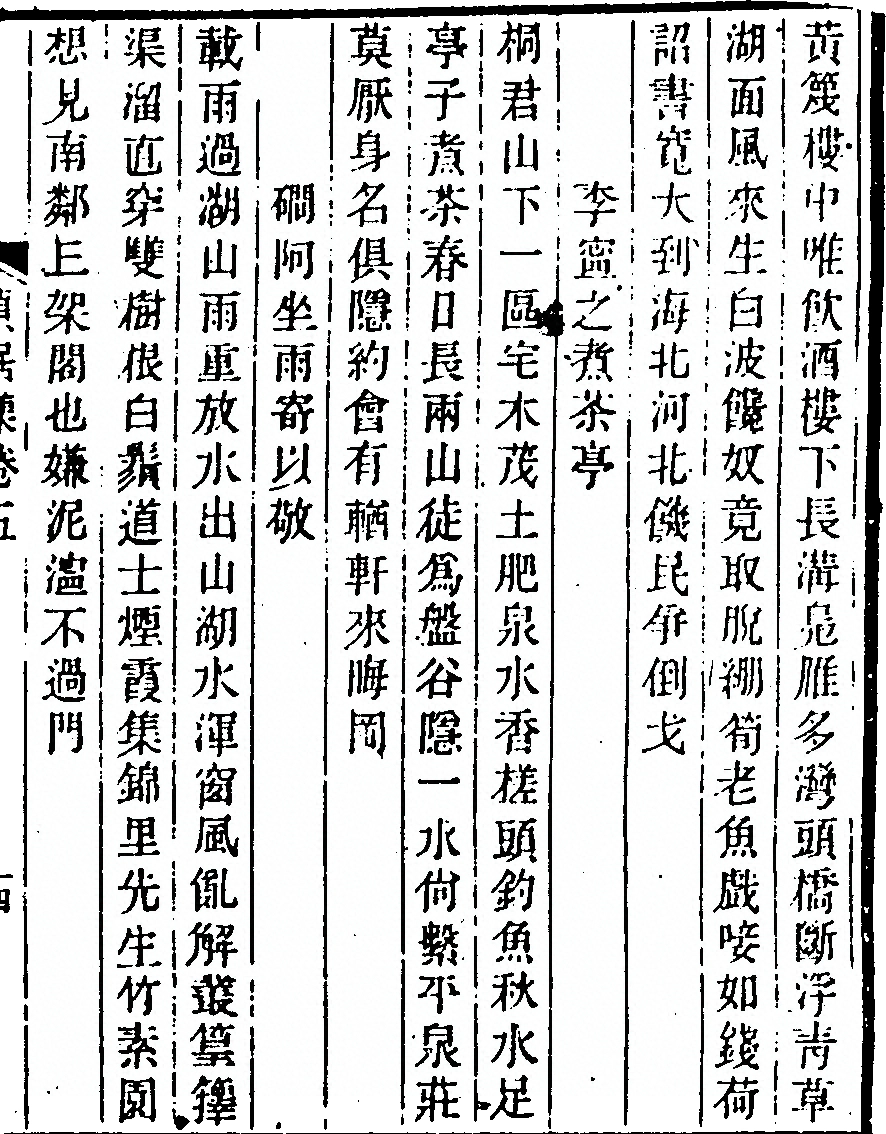 黃篾樓中唯飲酒樓下長溝鳧雁多灣頭橋斷浮青草
湖面風來生白波饞奴竟取脫綳筍老魚戲唼如錢荷
詔書寬大到海北河北饑民爭倒戈
李甯之煮茶亭
桐君山下一區宅木茂土肥泉水香槎頭釣魚秋水足
亭子煮茶春日長兩山徒爲盤谷隱一水何繫平泉莊
莫厭身名俱隱約會有輶軒來晦岡
磵阿坐雨寄以敬
載雨過湖山雨重放水出山湖水渾窗風亂解叢篁籜
渠溜直穿雙樹根白鬚道士煙霞集錦里先生竹素園
想見南鄰上架閣也嫌泥溋不過門
貞居藁卷五
四